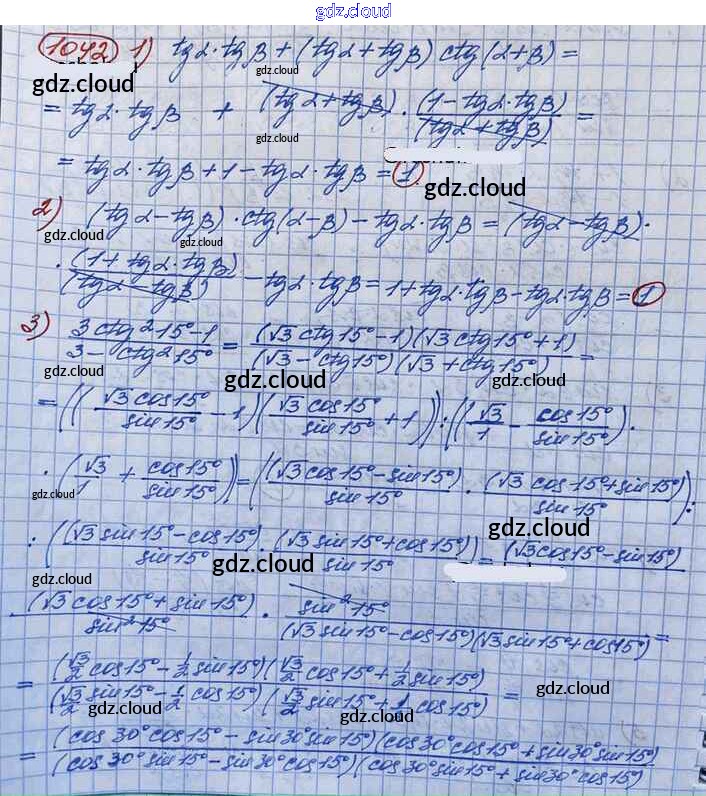 gdz.cloud
1042 1) tg α · tg β + (tg α + tg β) ctg (α + β) =
gdz.cloud gdz.cloud
= tg α · tg β + (tg α + tg β) · (1 - tg α · tg β)/(tg α + tg β) =
gdz.cloud gdz.cloud
= tg α · tg β + 1 - tg α · tg β = 1.
gdz.cloud
2) (tg α - tg β) · ctg (α - β) - tg α · tg β = (tg α - tg β) ·
gdz.cloud gdz.cloud
· (1 + tg α · tg β)/(tg α - tg β) - tg α · tg β = 1 + tg α · tg β - tg α · tg β = 1
gdz.cloud
3) (3 ctg² 15° - 1)/(3 - ctg² 15°) = (√3 ctg 15° - 1)(√3 ctg 15° + 1)/(√3 - ctg 15°)(√3 + ctg 15°) =
gdz.cloud gdz.cloud
= ((√3 cos 15°/sin 15° - 1)(√3 cos 15°/sin 15° + 1)) : ((√3/1 - cos 15°/sin 15°) ·
· (√3/1 + cos 15°/sin 15°)) = ((√3 cos 15° - sin 15°)/sin 15° · (√3 cos 15° + sin 15°)/sin 15°) :
gdz.cloud gdz.cloud
: ((√3 sin 15° - cos 15°)/sin 15° · (√3 sin 15° + cos 15°)/sin 15°) = (√3 cos 15° - sin 15°)
gdz.cloud gdz.cloud
(√3 cos 15° + sin 15°)/sin² 15° · sin² 15°/(√3 sin 15° - cos 15°)(√3 sin 15° + cos 15°) =
= (√3/2 cos 15° - 1/2 sin 15°)(√3/2 cos 15° + 1/2 sin 15°)/(√3/2 sin 15° - 1/2 cos 15°)(√3/2 sin 15° + 1/2 cos 15°) =
gdz.cloud gdz.cloud gdz.cloud
= (cos 30° cos 15° - sin 30° sin 15°)(cos 30° cos 15° + sin 30° sin 15°)/(cos 30° sin 15° - sin 30° cos 15°)(cos 30° sin 15° + sin 30° cos 15°)